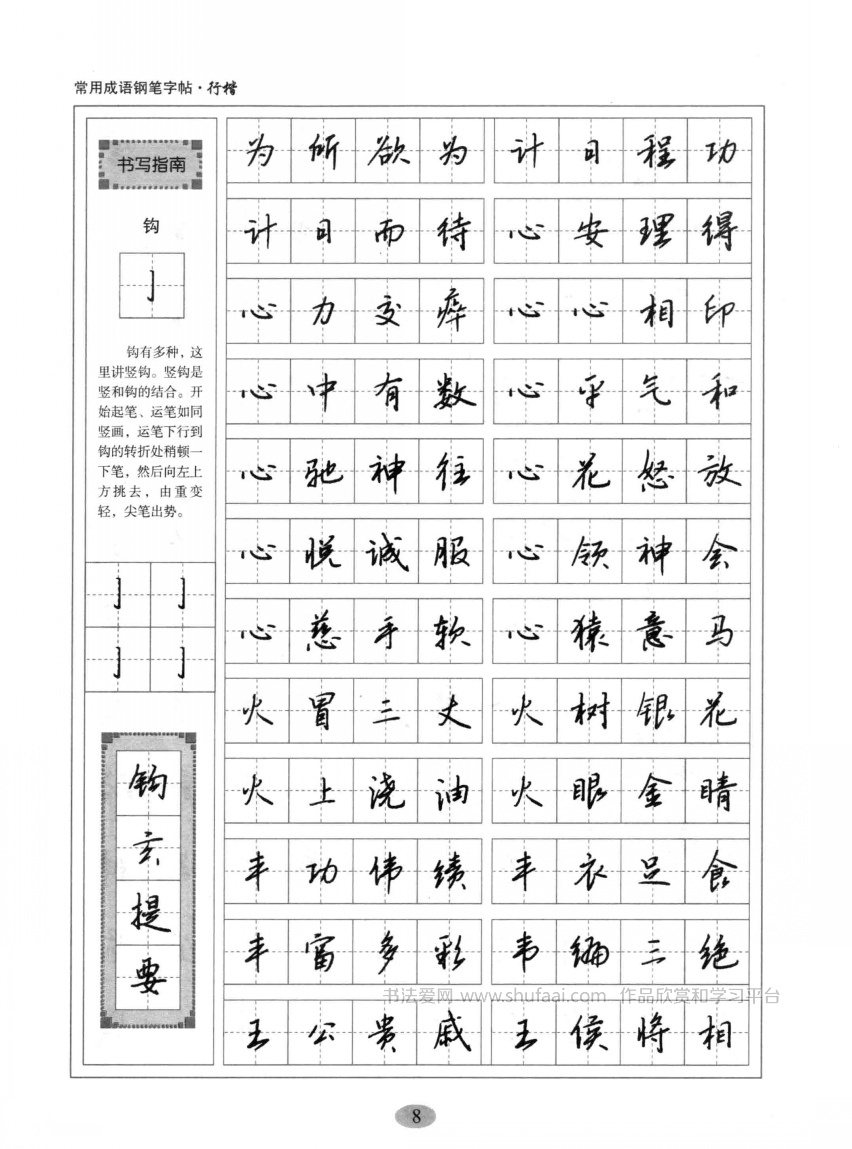 常用成语钢笔字帖·行楷
书写指南
钩
亅
钩有多种，这
里讲竖钩。竖钩是
竖和钩的结合。开
始起笔、运笔如同
竖画，运笔下行到
钩的转折处稍顿一
下笔，然后向左上
方挑去，由重变
轻，尖笔出势。
亅亅
亅亅
钩玄提要
为所欲为 计日程功
计日而待 心安理得
心力交瘁 心心相印
心中有数 心平气和
心驰神往 心花怒放
心悦诚服 心领神会
心慈手软 心猿意马
火冒三丈 火树银花
火上浇油 火眼金睛
丰功伟绩 丰衣足食
丰富多彩 韦编三绝
书法爱网 www.shufaai.com 作品欣赏和学习平台
王公贵戚 王侯将相
8